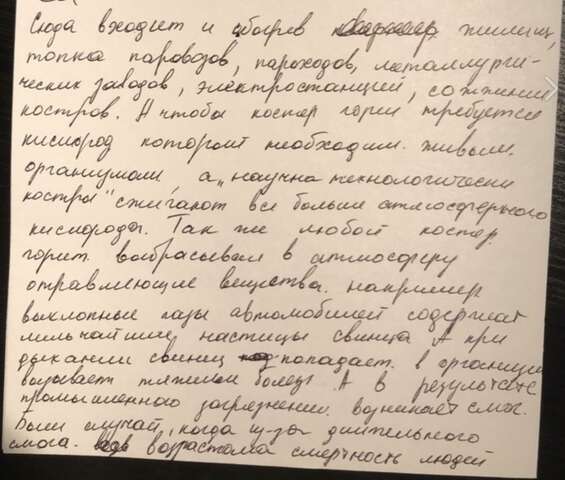 Сюда входит и обогрев жилищ,
топка паровозов, пароходов, металлурги-
ческих заводов, электростанций, сожжении
костров. А чтобы костер горел требуется
кислород который необходим живым
организмам а „научна технологически
костры" сжигают все больше атмосферного
кислорода. Так же любой костер
горит выбрасывал в атмосферу
отравляющие вещества. например
выклопные газы автомобилей содержат
мельчайшие частицы свинца А при
дыхании свинец попадает в организм
вызывает тяжилы болезн А в результате
промышленного загрезнении возникает смог.
Были случай, когда из-за длительного
смога возрастала смертность людей